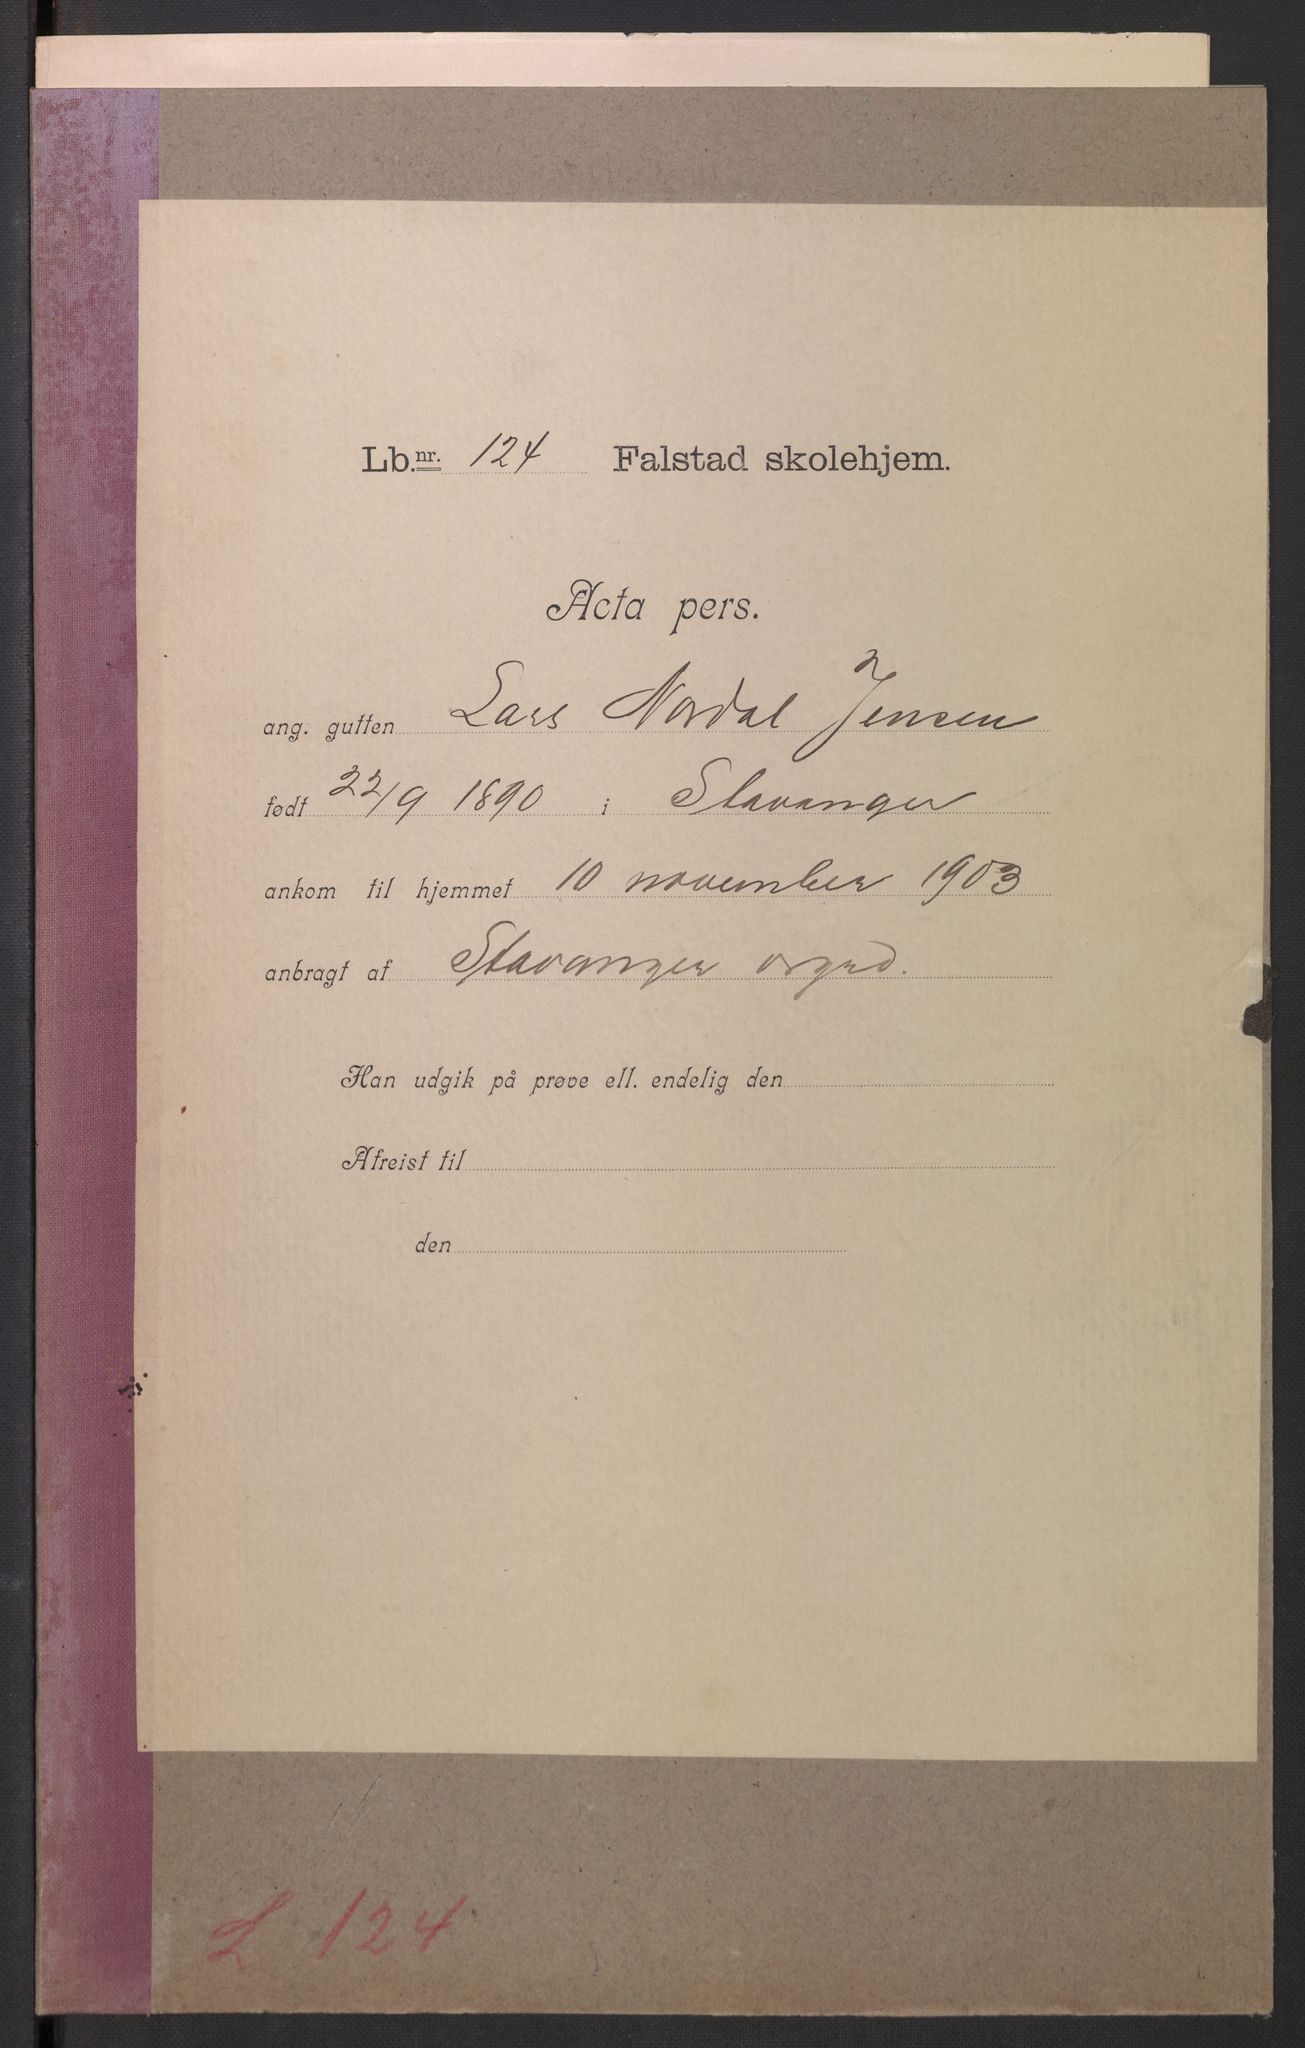 Lb. nr. 124 Falstad skolehjem.
Acta pers.
ang. gutten Lars Nordal Jensen
født 22/9 1890 i Stavanger
ankom til hjemmet 10 november 1903
anbragt af Stavanger vrgrd.
Han udgik på prøve ell. endelig den
Afreist til
den
L 124